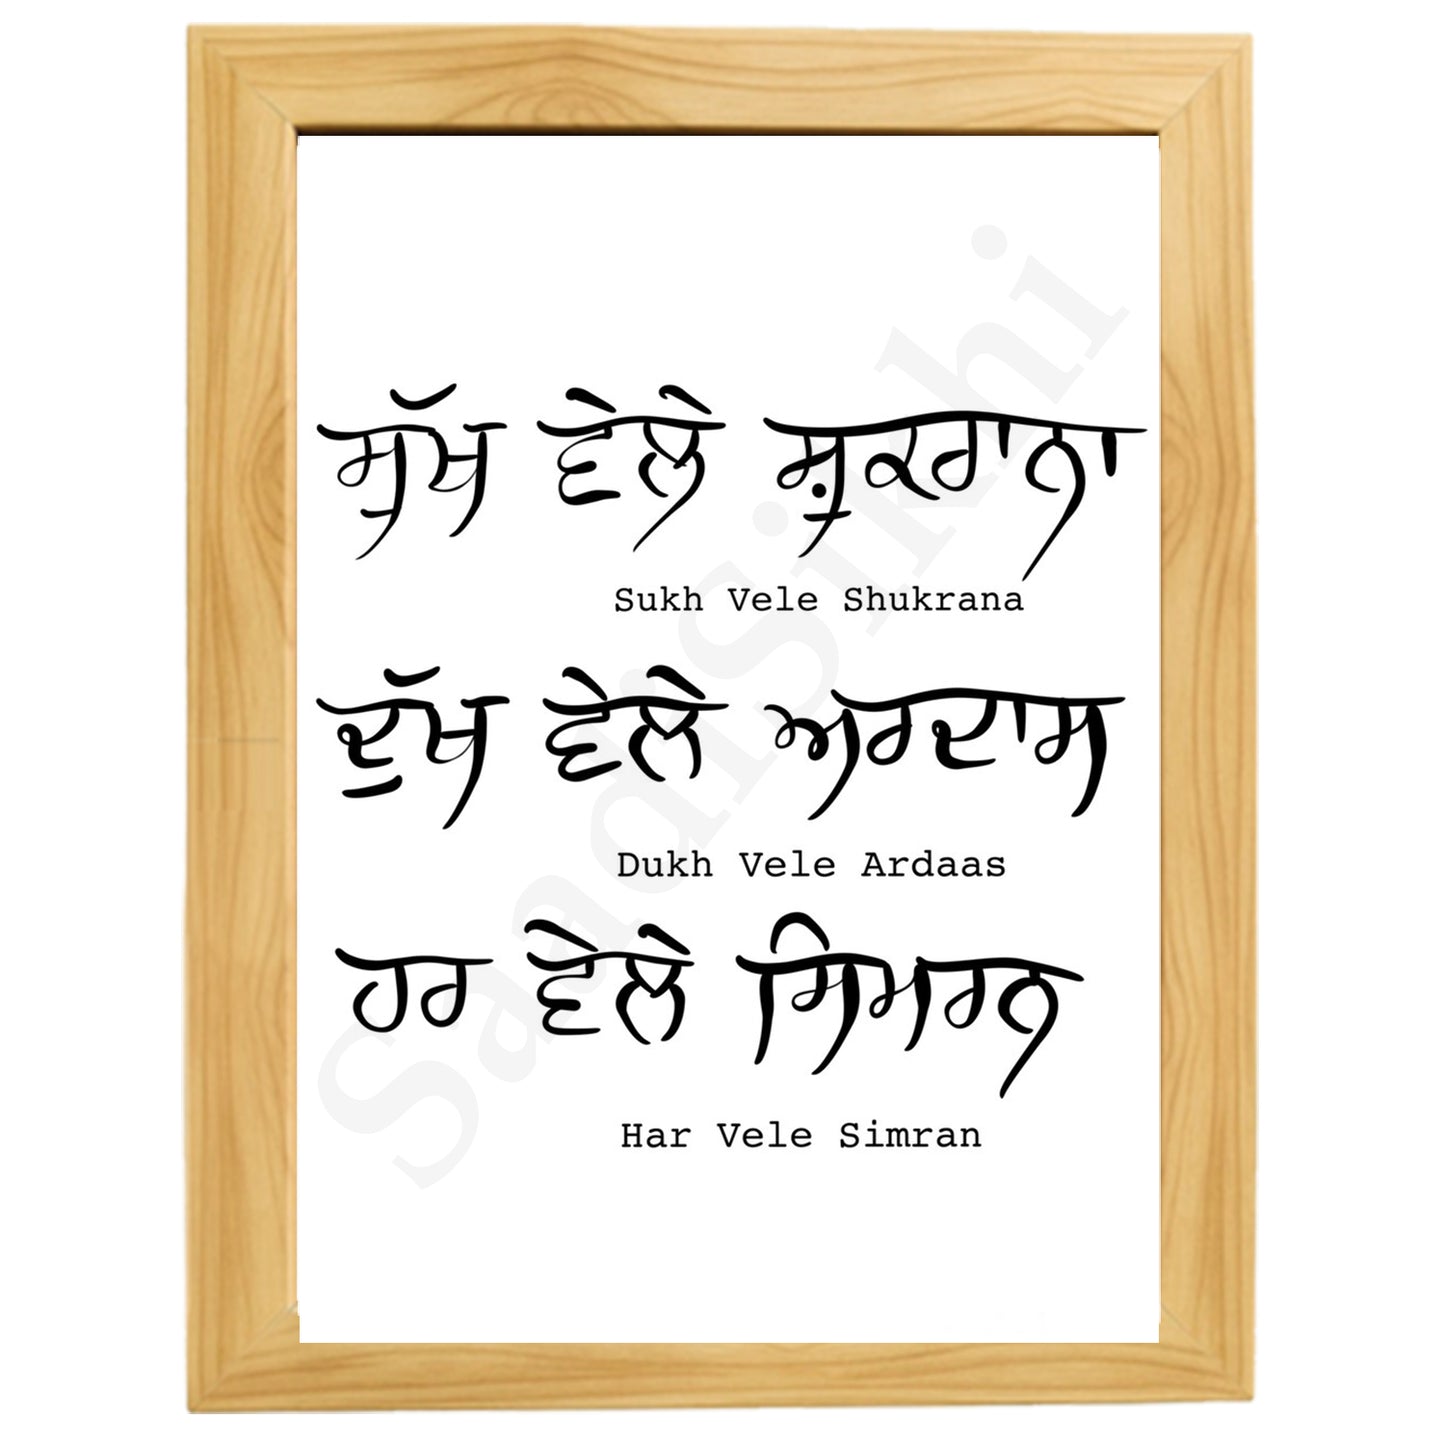 ਸੁੱਖ ਵੇਲੇ ਸ਼ੁਕਰਾਨਾ
Sukh Vele Shukrana
ਦੁੱਖ ਵੇਲੇ ਅਰਦਾਸ
Dukh Vele Ardaas
ਹਰ ਵੇਲੇ ਸਿਮਰਨ
Har Vele Simran
SaadiSikhi